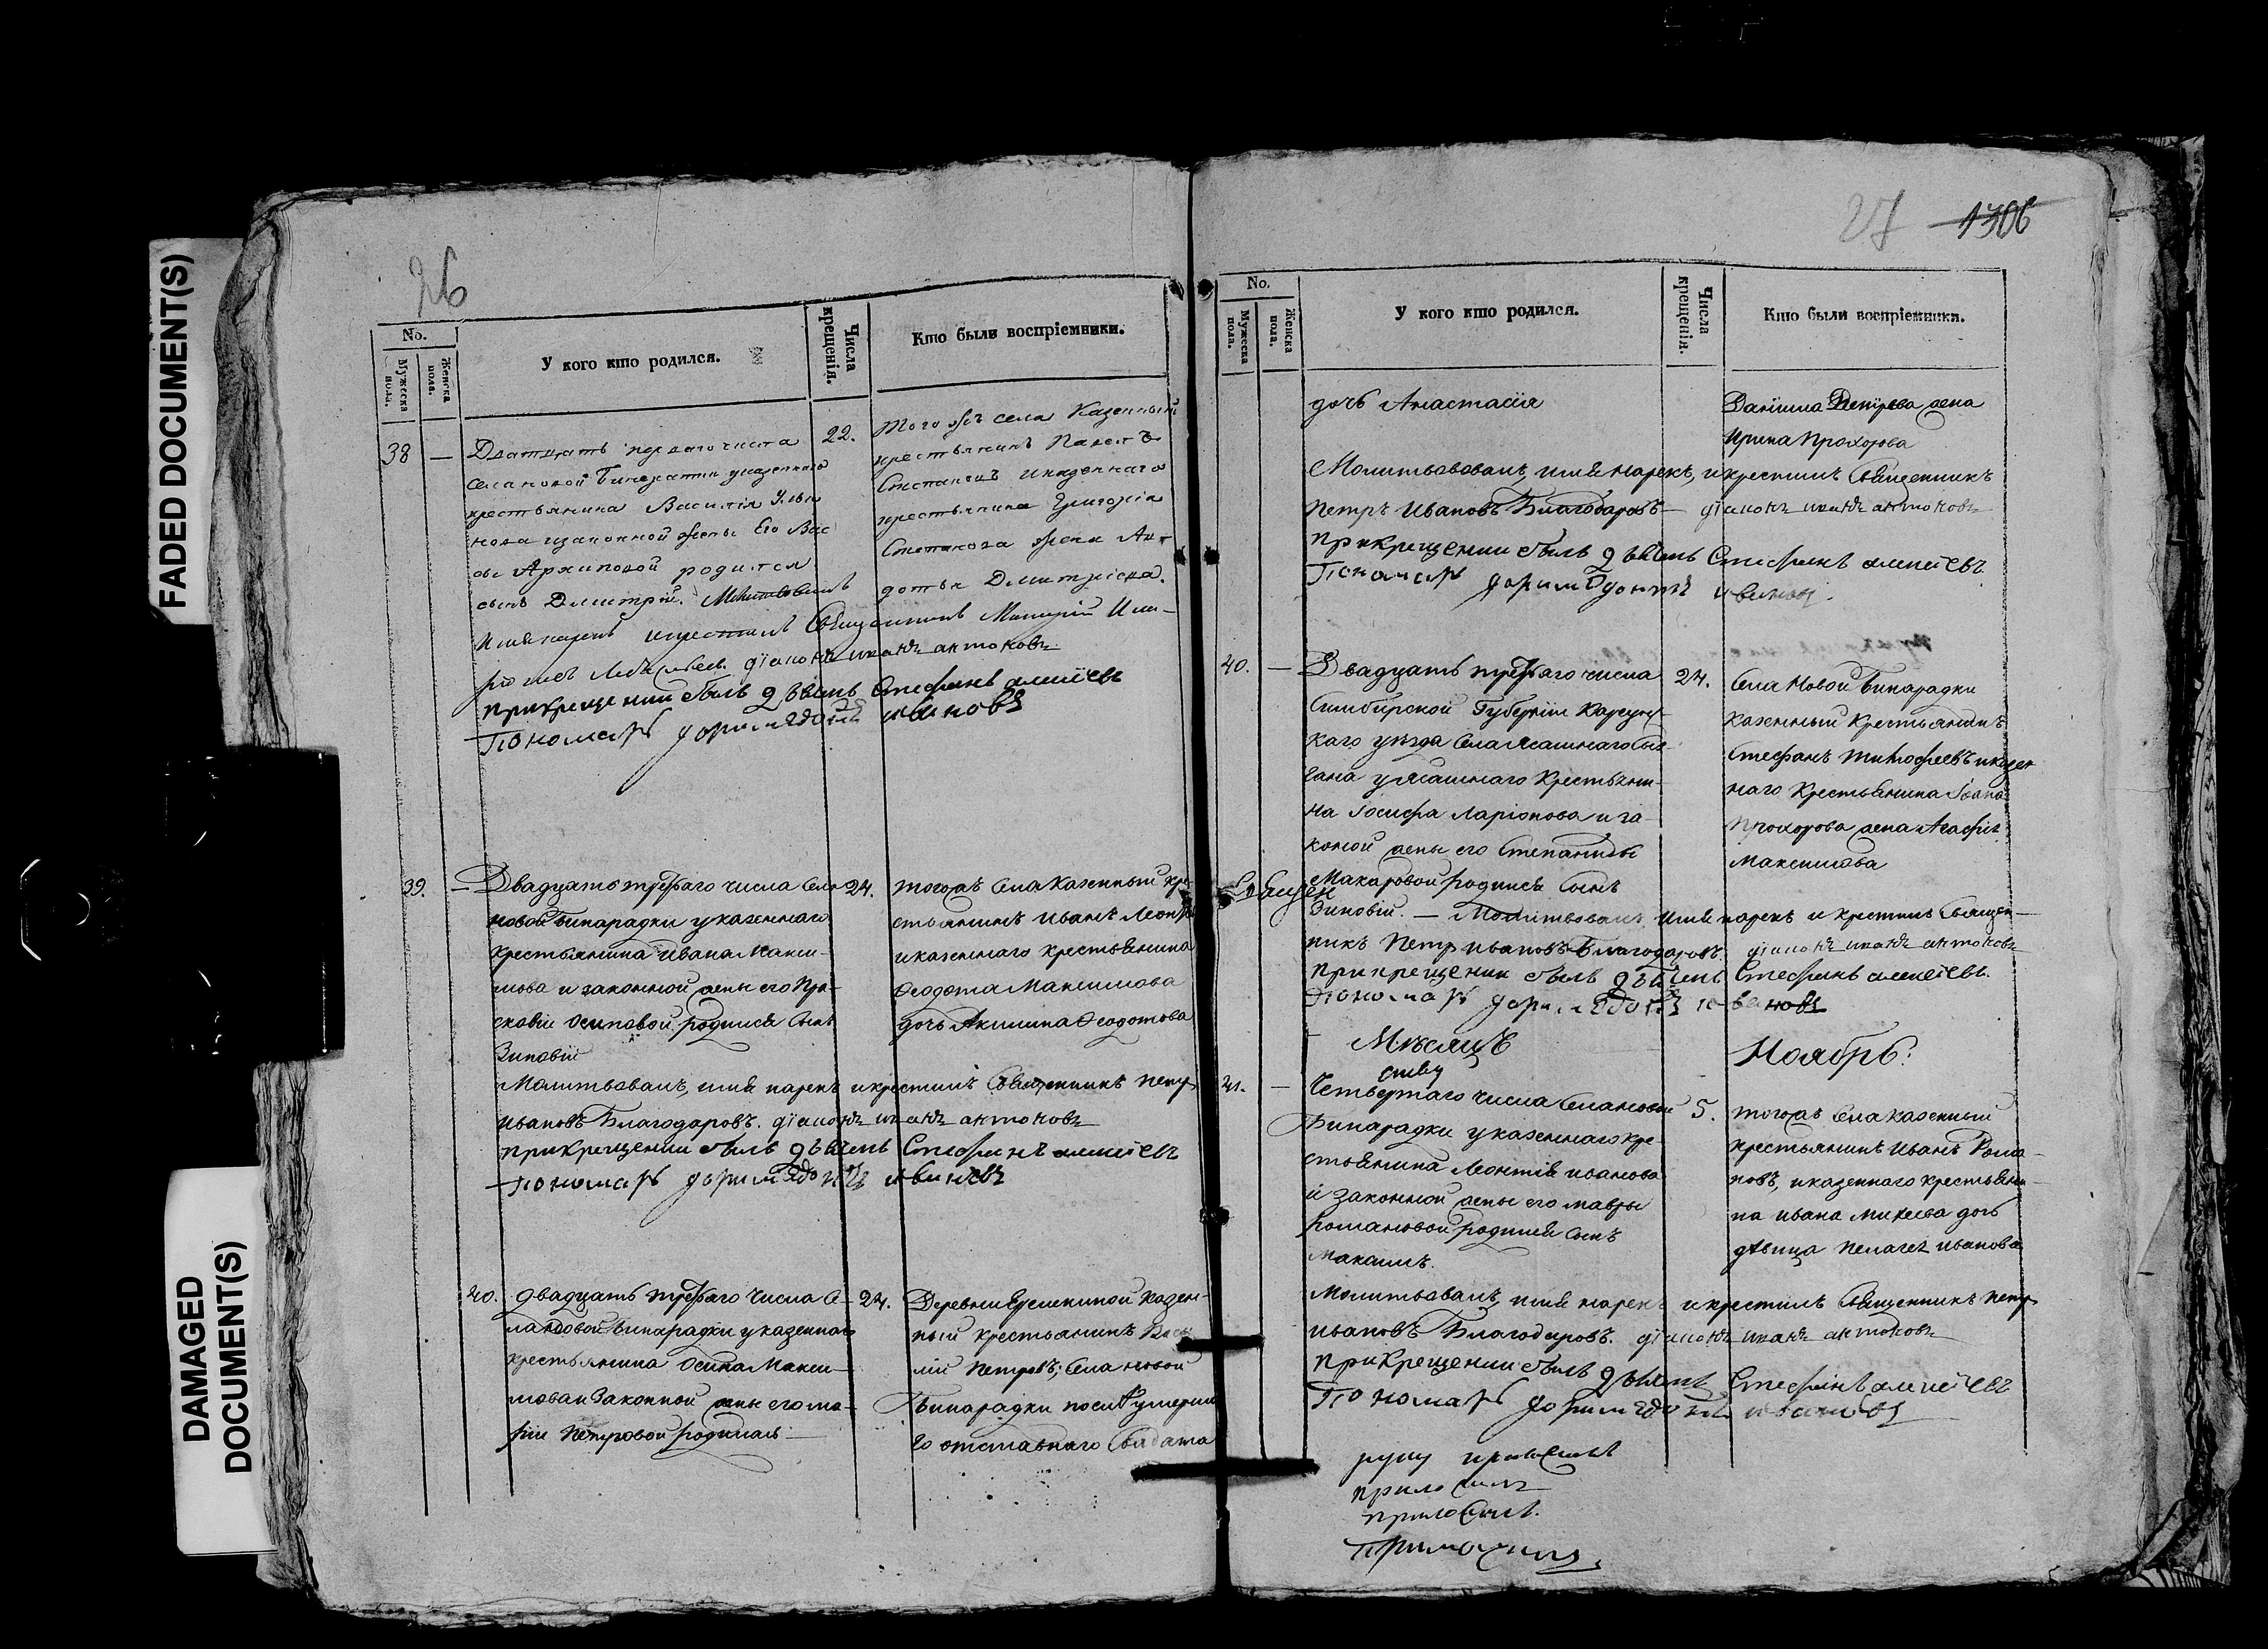 FADED DOCUMENT(S)
DAMAGED
DOCUMENT(S)
26
No.
Мужеска пола.
Женска пола.
У кого кто родился.
Числа крещенія.
Кто были воспріемники.
38
—
Дватцать первого числа
22.
села новой Бинаратки у казеннаго
крестьянина Василія
нова изаконной жены Его Вас
сы Архиповой родился
сынъ Дмитрій. Молитвовалъ
Имя нарекъ икрестилъ Священникъ
діаконъ иванъ антоновъ
при крещении былъ Стефанъ алексіевъ
Пономарь доримедонтъ ивановъ
Того жъ села Казенный
крестьянинъ Павелъ
Степановъ иказеннаго
крестьянина Григорія
Степанова жена Ав
дотья Дмитріева.
39.
—
Двадцать третьяго числа Села
24.
новой бинарадки у казеннаго
крестьянина ивана Макси-
мова и законной жены его Пра-
сковіи Осиповой родился Сынъ
Зиновій
Молитвовалъ, имя нарекъ икрестилъ Священникъ петръ
ивановъ Благодаровъ. діаконъ иванъ антоновъ
при крещении былъ Стефанъ алексіевъ
Пономарь доримедонтъ ивановъ
тогожъ Села Казенный кре-
стьянинъ иванъ
иказеннаго крестьянина
Ѳеодота Максимова
дочь Акилина Ѳеодотова
40.
двадцать третьяго числа Се-
24.
ла новой бинарадки у казеннаго
крестьянина Осипа Макси-
мова и Законной жены его ма-
ріи Петровой родилась
Деревни Еремкиной казен-
ный крестьянинъ Васи
лій Петровъ; Села новой
бинарадки послѣ умерша
го отставнаго Солдата
27 1306
No.
Мужеска пола.
Женска пола.
У кого кто родился.
Числа крещенія.
Кто были воспріемники.
дочь Анастасія
Даніила Петрова жена
Ирина Прохорова
Молитвовалъ, имя нарекъ, икрестилъ Священникъ
петръ Ивановъ Благодаровъ — діаконъ иванъ антоновъ
при крещении былъ Стефанъ алексіевъ.
Пономарь доримедонтъ ивановъ.
40.
—
Двадцать третьяго числа
24.
Симбирской Губерніи Карсунс-
каго уезда Села Ясашнаго Сы-
зана у Ясашнаго Крестьяни-
на Іосифа Ларіонова и за-
коной жены его Степаниды
Макаровой родился Сынъ
Зиновій. — Молитвовалъ имя нарекъ и крестилъ Священ-
никъ Петр ивановъ Благодаровъ. діаконъ иванъ антоновъ
при крещении былъ Стефанъ алексіевъ.
Пономарь доримедонтъ ивановъ
Села Новой Бинарадки
казенный Крестьянинъ
Стефанъ Тимофеевъ иказен
наго Крестьянина Іоана
Прохорова жена Агафія
Максимова
Священ
Мѣсяцъ
Ноябрь:
41.
—
Четвертаго числа Села новой
5.
Бинарадки у казеннаго кре-
стьянина Леонтія иванова
и законной жены его мавры
Романовой родился Сынъ
Максимъ.
тогожъ Села казенный
крестьянинъ иванъ Рома-
новъ, иказеннаго крестьяни-
на ивана михеева дочь
дѣвица Пелагея иванова
Молитвовалъ, имя нарекъ икрестилъ Священникъ петръ
ивановъ Благодаровъ. діаконъ иванъ антоновъ
при крещении былъ Стефанъ алексіевъ
Пономарь доримедонтъ ивановъ
руку приложилъ
приложилъ
приложилъ.
приложилъ